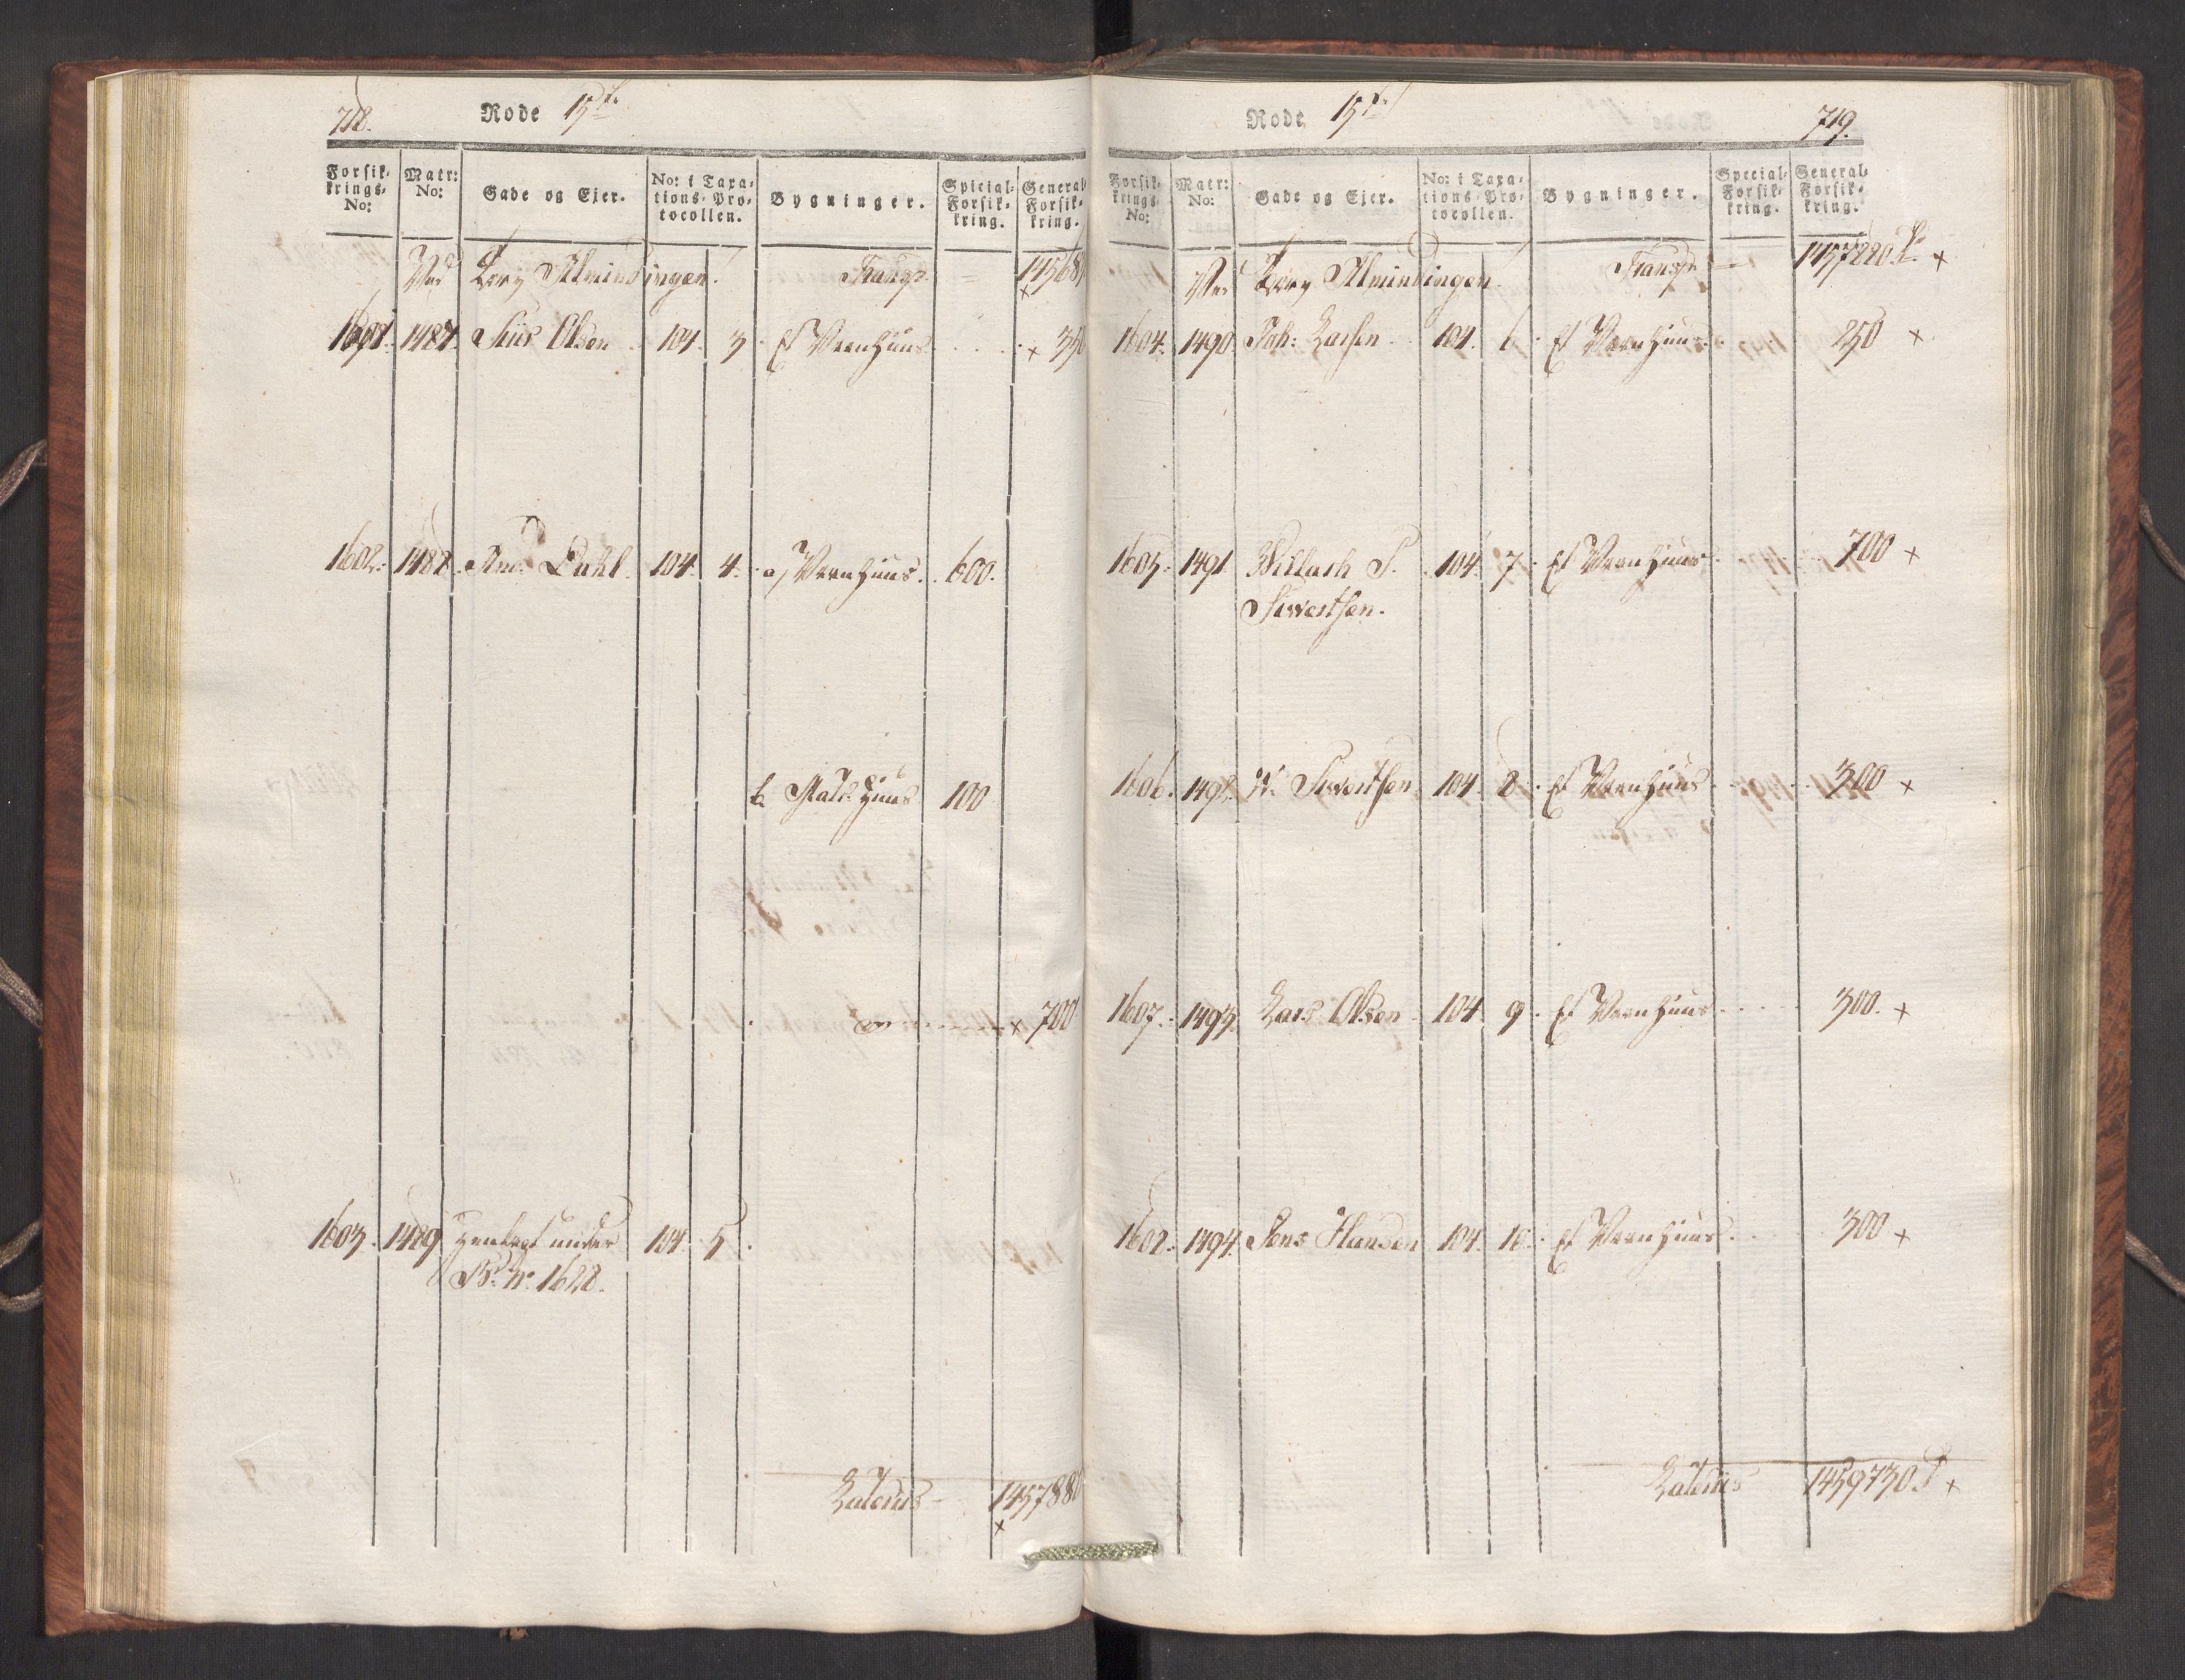 718.
Rode 15de
Forsik- krings- No: Matr: No: Gade og Ejer. No: i Taxa- tions-Pro- tocollen. Bygninger. Special- Forsik- kring. General- Forsik- kring.
Ved Torv Almindingen. Transp. 14568
1601. 1487. Siur Olsen 104. 3. Et Vaanhuus 350
1602. 1488. And: Dahl. 104. 4. a, Vaanhuus. 600.
b. Malt-Huus 100
700
1603. 1489 henlagt under 104. 5.
Bd. No. 1628.
Lateris 145788
Rode 15de
719.
Forsik- krings- No: Matr: No: Gade og Ejer. No: i Taxa- tions-Pro- tocollen. Bygninger. Special- Forsik- kring. General- Forsik- kring.
Ved Torv Almindingen. Transp. 1457880
1604. 1490. Joh: Larsen 104. 6. Et Vaanhuus 250
1605. 1491. Willach S. 104. 7. Et Vaanhuus 700
Siwertsen.
1606. 1492. W. Siwertsen 104. 8. Et Vaanhuus 300
1607. 1493. Lars Olsen 104. 9. Et Vaanhuus 300.
1608. 1494. Jens Hansen 104. 10. Et Vaanhuus. 300
Lateris 1459730